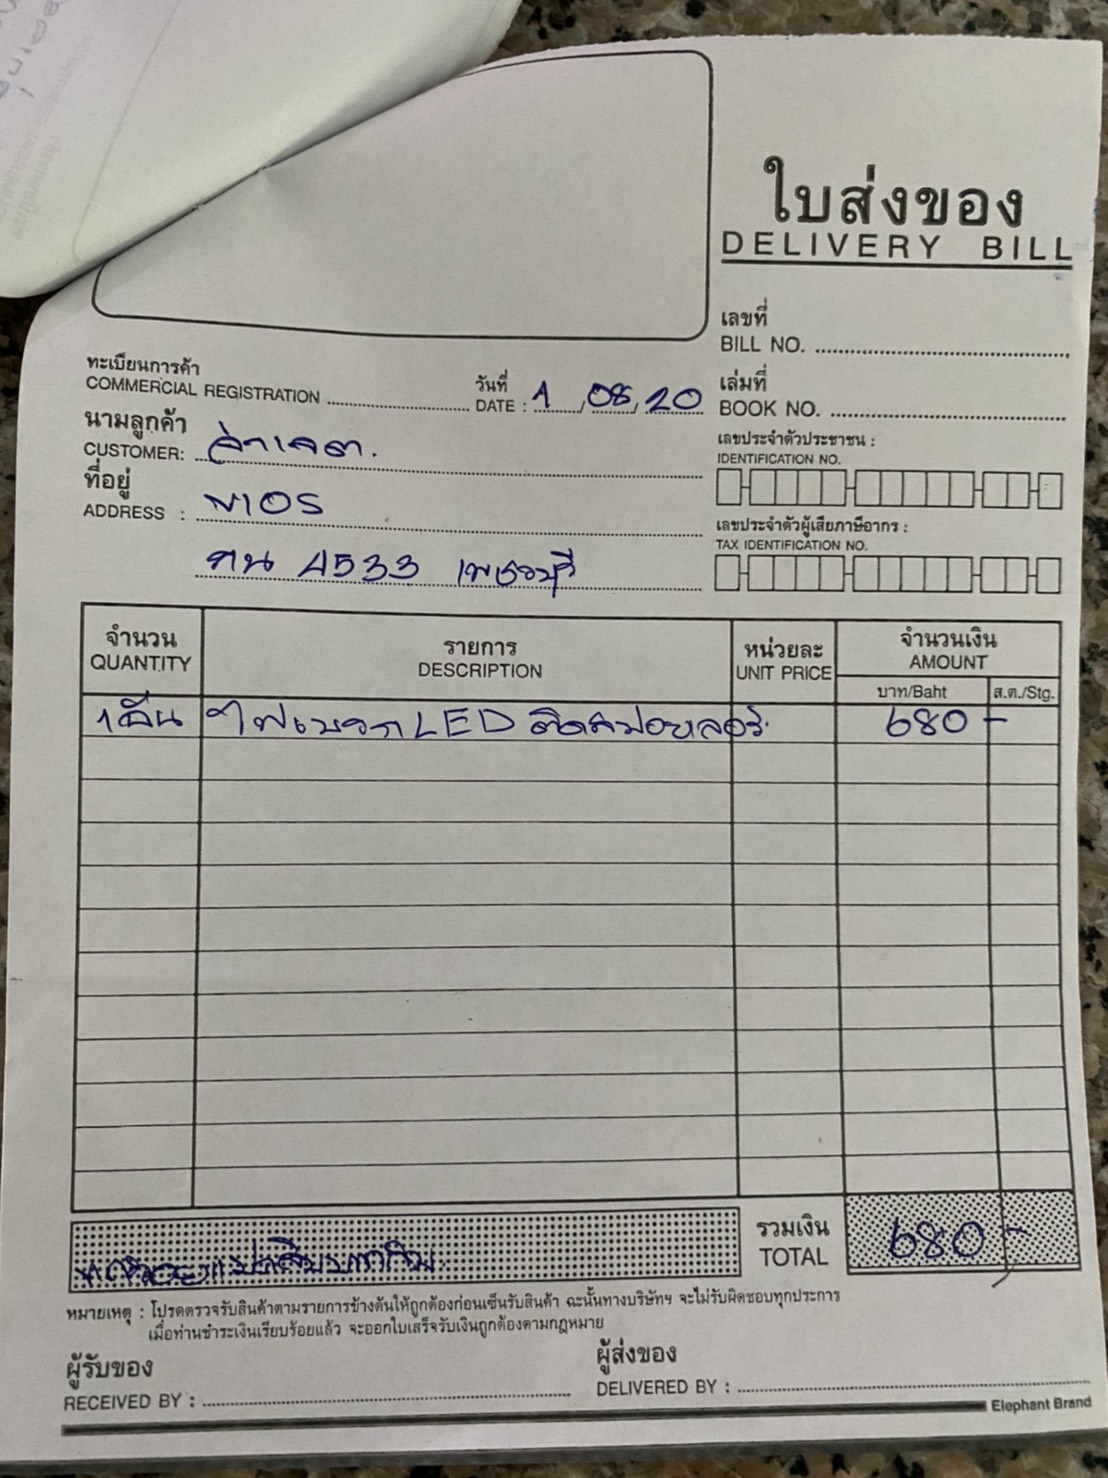 ใบส่งของ
DELIVERY BILL
เลขที่
BILL NO.
ทะเบียนการค้า
COMMERCIAL REGISTRATION
วันที่
DATE : 1 / 08 / 20
เล่มที่
BOOK NO.
นามลูกค้า
CUSTOMER:
เลขประจำตัวประชาชน :
IDENTIFICATION NO.
ที่อยู่
ADDRESS :
เลขประจำตัวผู้เสียภาษีอากร :
TAX IDENTIFICATION NO.
4533 เพชรบุรี
จำนวน
QUANTITY
รายการ
DESCRIPTION
หน่วยละ
UNIT PRICE
จำนวนเงิน
AMOUNT
บาท/Baht
ส.ต./Stg.
1 อัน ไฟเบรก LED ติดสปอยเลอร์ 680 -
รวมเงิน
TOTAL
680 -
หมายเหตุ : โปรดตรวจรับสินค้าตามรายการข้างต้นให้ถูกต้องก่อนเซ็นรับสินค้า ฉะนั้นทางบริษัทฯ จะไม่รับผิดชอบทุกประการ
เมื่อท่านชำระเงินเรียบร้อยแล้ว จะออกใบเสร็จรับเงินถูกต้องตามกฎหมาย
ผู้รับของ
RECEIVED BY :
ผู้ส่งของ
DELIVERED BY :
Elephant Brand